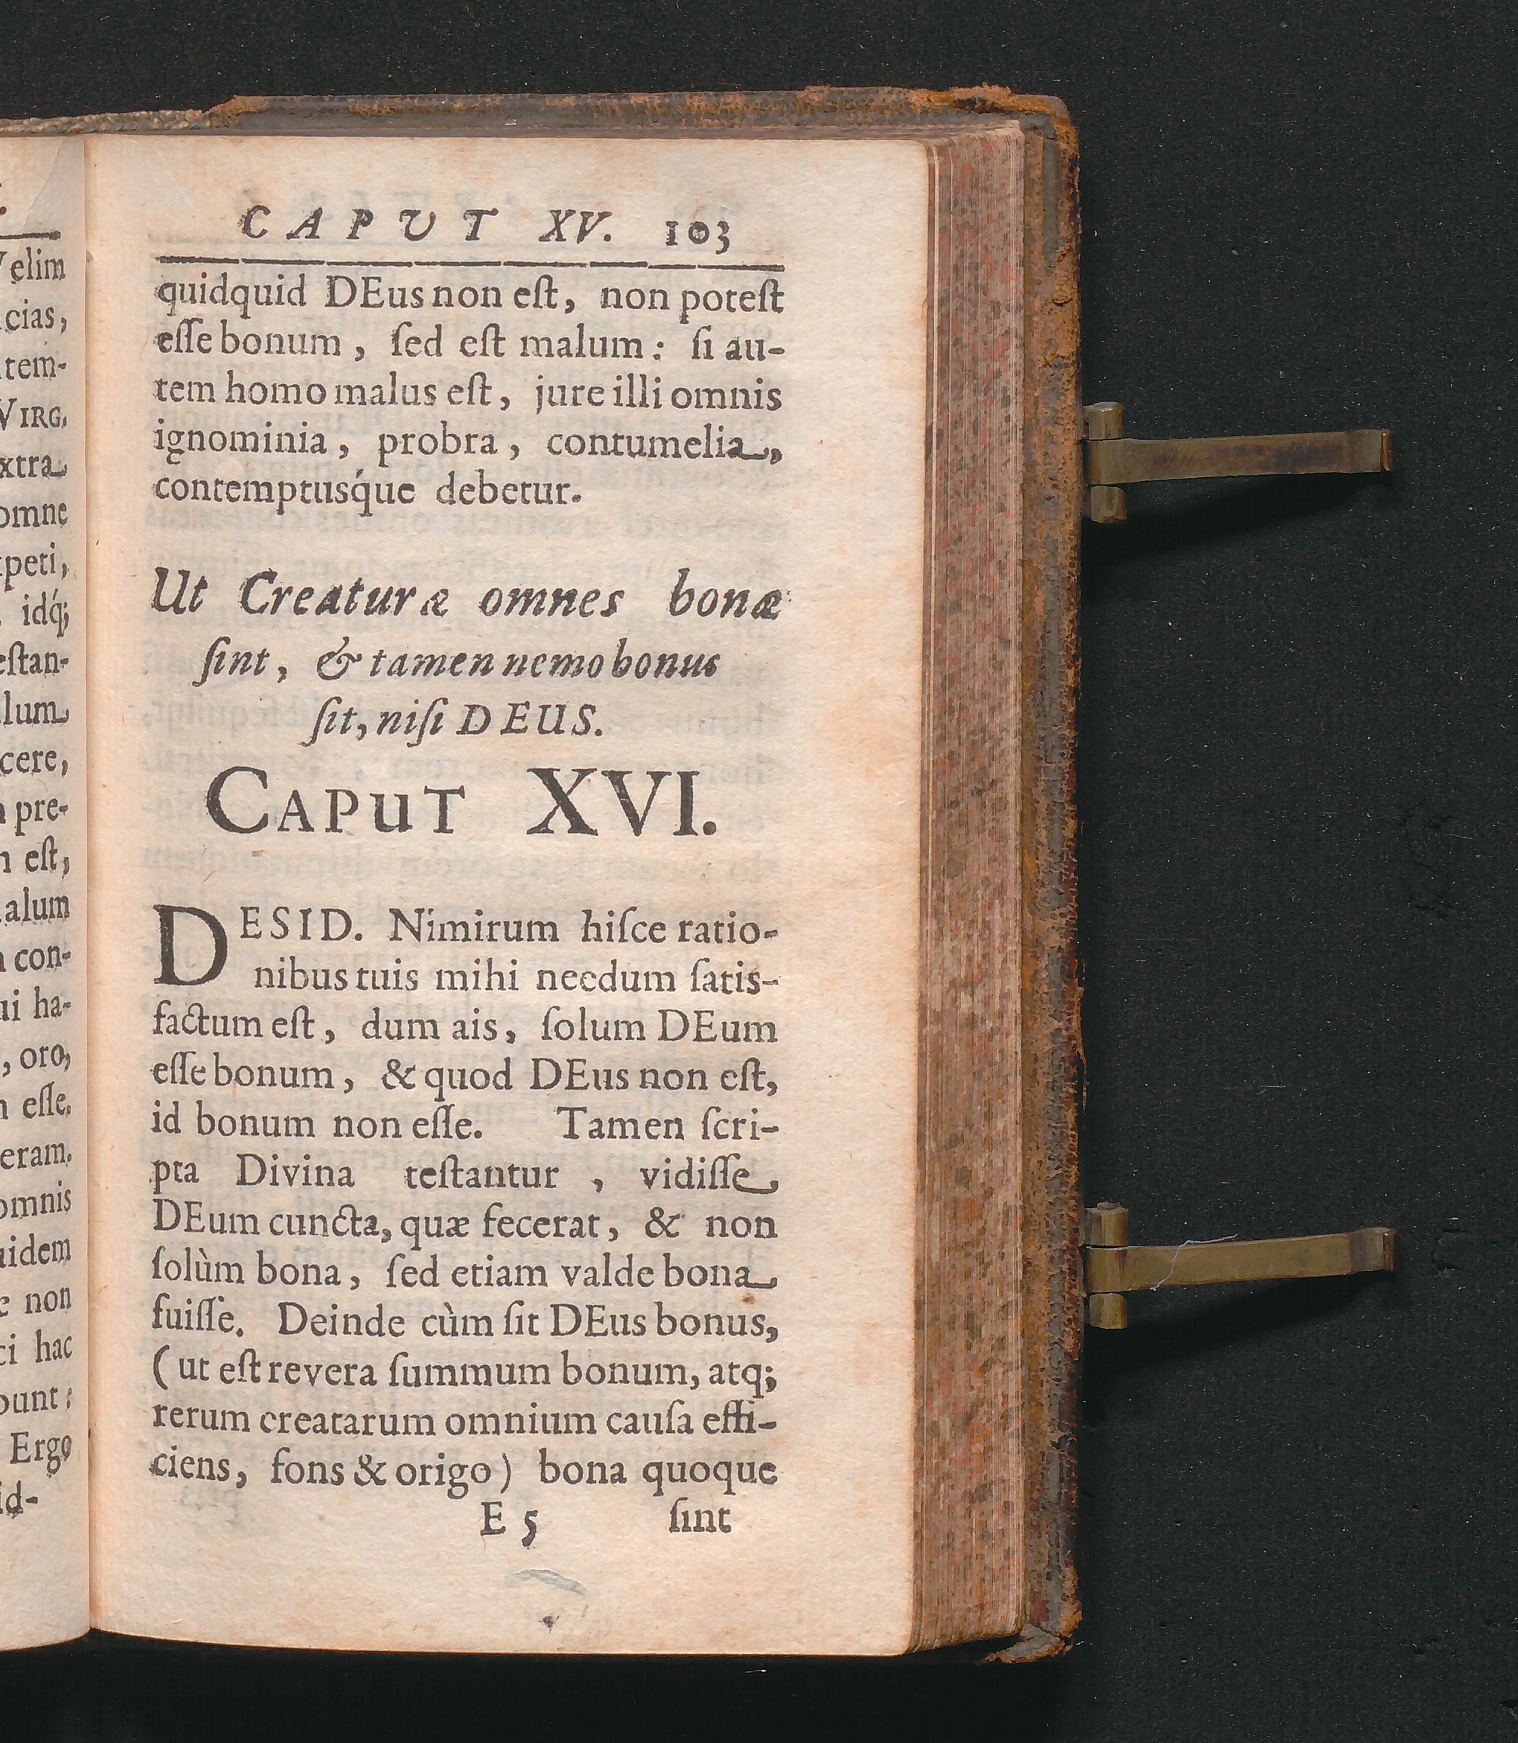 CAPUT XV. 103
quidquid DEus non eſt, non poteſt
eſſe bonum, ſed eſt malum: ſi au-
tem homo malus eſt, jure illi omnis
ignominia, probra, contumelia,
contemptusq́ue debetur.
Ut Creaturæ omnes bonæ
ſint, & tamen nemo bonus
ſit, niſi DEUS.
CAPUT XVI.
DESID. Nimirum hiſce ratio-
nibus tuis mihi necdum ſatis-
factum eſt, dum ais, ſolum DEum
eſſe bonum, & quod DEus non eſt,
id bonum non eſſe. Tamen ſcri-
pta Divina teſtantur, vidiſſe
DEum cuncta, quæ fecerat, & non
ſolùm bona, ſed etiam valde bona
fuiſſe. Deinde cùm ſit DEus bonus,
(ut eſt revera ſummum bonum, atq;
rerum creatarum omnium cauſa effi-
ciens, fons & origo) bona quoque
E 5 ſint
elim
cias,
tem-
VIRG.
xtra
omne
peti,
idq́;
eſtan-
lum
cere,
pre-
eſt,
alum
con-
ui ha-
, oro,
eſſe.
eram.
omnis
uidem
non
ci hac
bunt:
Ergo
id-